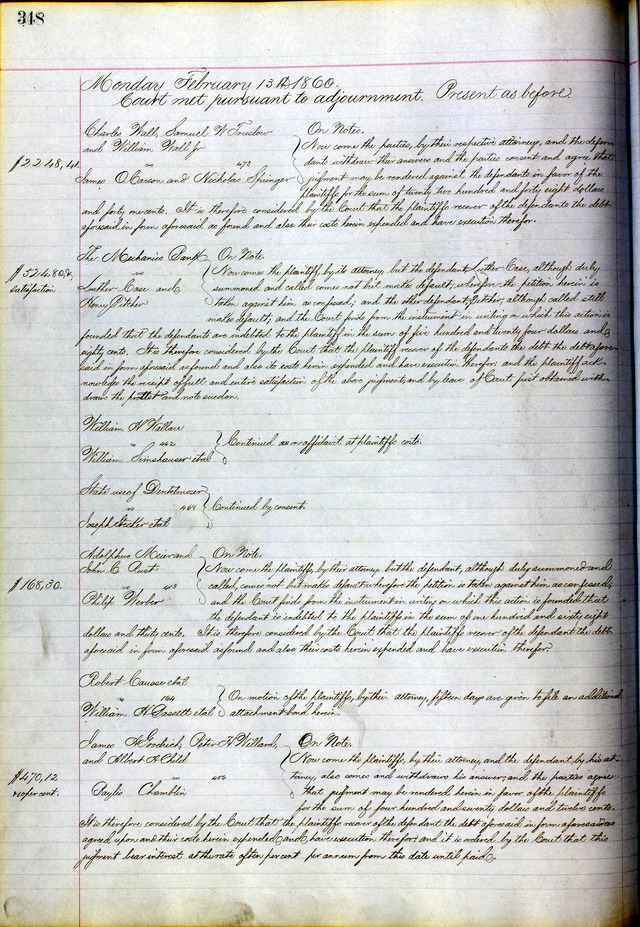 348
Monday February 13th 1860.
Court met pursuant to adjournment. Present as before.
Charles Wall, Samuel W Truslow On Note.
and William Wall Jr Now come the parties, by their respective attorneys, and the defen-
$2248,41. vs 473 dants withdraw their answers and the parties consent and agree that
James O Carson and Nicholas Springer judgment may be rendered against the defendants in favor of the
plaintiffs for the sum of twenty two hundred and forty eight dollars
and forty one cents. It is therefore considered by the Court that the plaintiffs recover of the defendants the debt
aforesaid in form aforesaid as found and also their costs herein expended and have execution therefor.
The Mechanics Bank On Note
$524.80, vs Now comes the plaintiff, by its attorney, but the defendant Luther Case, although duly
satisfaction Luther Case and summoned and called comes not but makes default; wherefore the petition herein is
Henry Pitcher taken against him as confessed; and the other defendant Pitcher, although called still
makes default, and the Court finds from the instrument in writing on which this action is
founded that the defendants are indebted to the plaintiff in the sum of five hundred and twenty four dollars and
eighty cents. It is therefore considered by the Court that the plaintiff recover of the defendants the debt afore-
said in form aforesaid as found and also its costs herein expended and have execution therefor; and the plaintiff ack-
nowledges the receipt of full and entire satisfaction of the above judgment; and by leave of Court first obtained with-
draws the note sued on.
William H Wallace
" 462 Continued as on affidavit at plaintiffs costs.
William Simshauser et al
State use of Dentelmoser
vs 469 Continued by consent.
Joseph Hecker et al
Adolphus Meier and On Note.
John C Rust Now come the plaintiffs, by their attorney but the defendant, although duly summoned and
$168,30. vs 413 called, comes not but makes default wherefore the petition is taken against him as confessed,
Philip Yerber and the Court finds from the instrument in writing on which this action is founded that
the defendant is indebted to the plaintiffs in the sum of one hundred and sixty eight
dollars and thirty cents. It is therefore considered by the Court that the plaintiffs recover of the defendant the debt
aforesaid in form aforesaid as found and also their costs herein expended and have execution therefor.
Robert Causse et al
" 164 On motion of the plaintiffs, by their attorney, fifteen days are given to file an additional
William H Gassett et al attachment bond herein.
James Goodrich, Peter H Willard, On Note.
and Albert H Child Now come the plaintiffs, by their attorney, and the defendant, by his at-
$470,12 vs torney, also comes and withdraws his answer; and the parties agree
10 per cent. Paylis Chamblin that judgment may be rendered herein in favor of the plaintiffs
for the sum of four hundred and seventy dollars and twelve cents.
It is therefore considered by the Court that the plaintiffs recover of the defendant the debt aforesaid in form aforesaid as
agreed upon and their costs herein expended and have execution therefor; and it is ordered by the Court that this
judgment bear interest at the rate of ten per cent per annum from this date until paid.